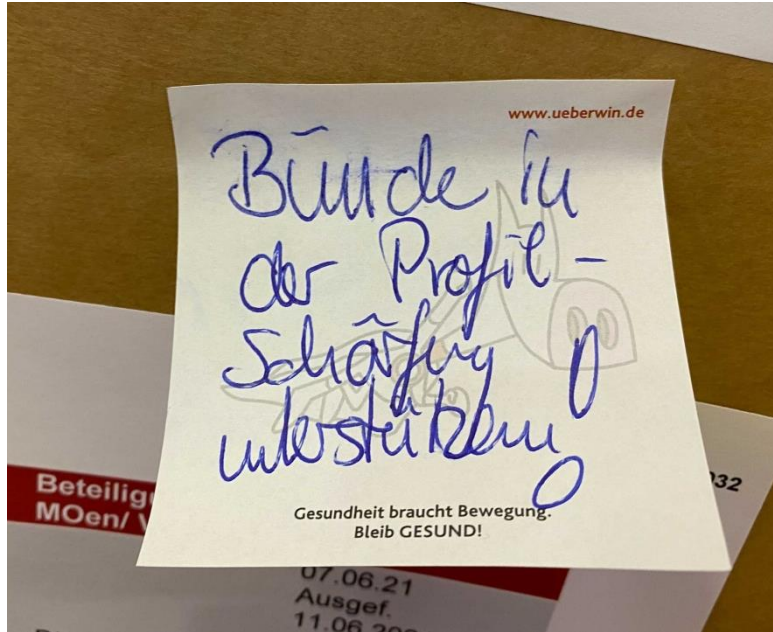 www.ueberwin.de
Bünde in
der Profil-
schärfung
unterstützen!
Gesundheit braucht Bewegung.
Bleib GESUND!
032
Beteilig
MOen/
07.06.21
Ausgef.
11.06.20